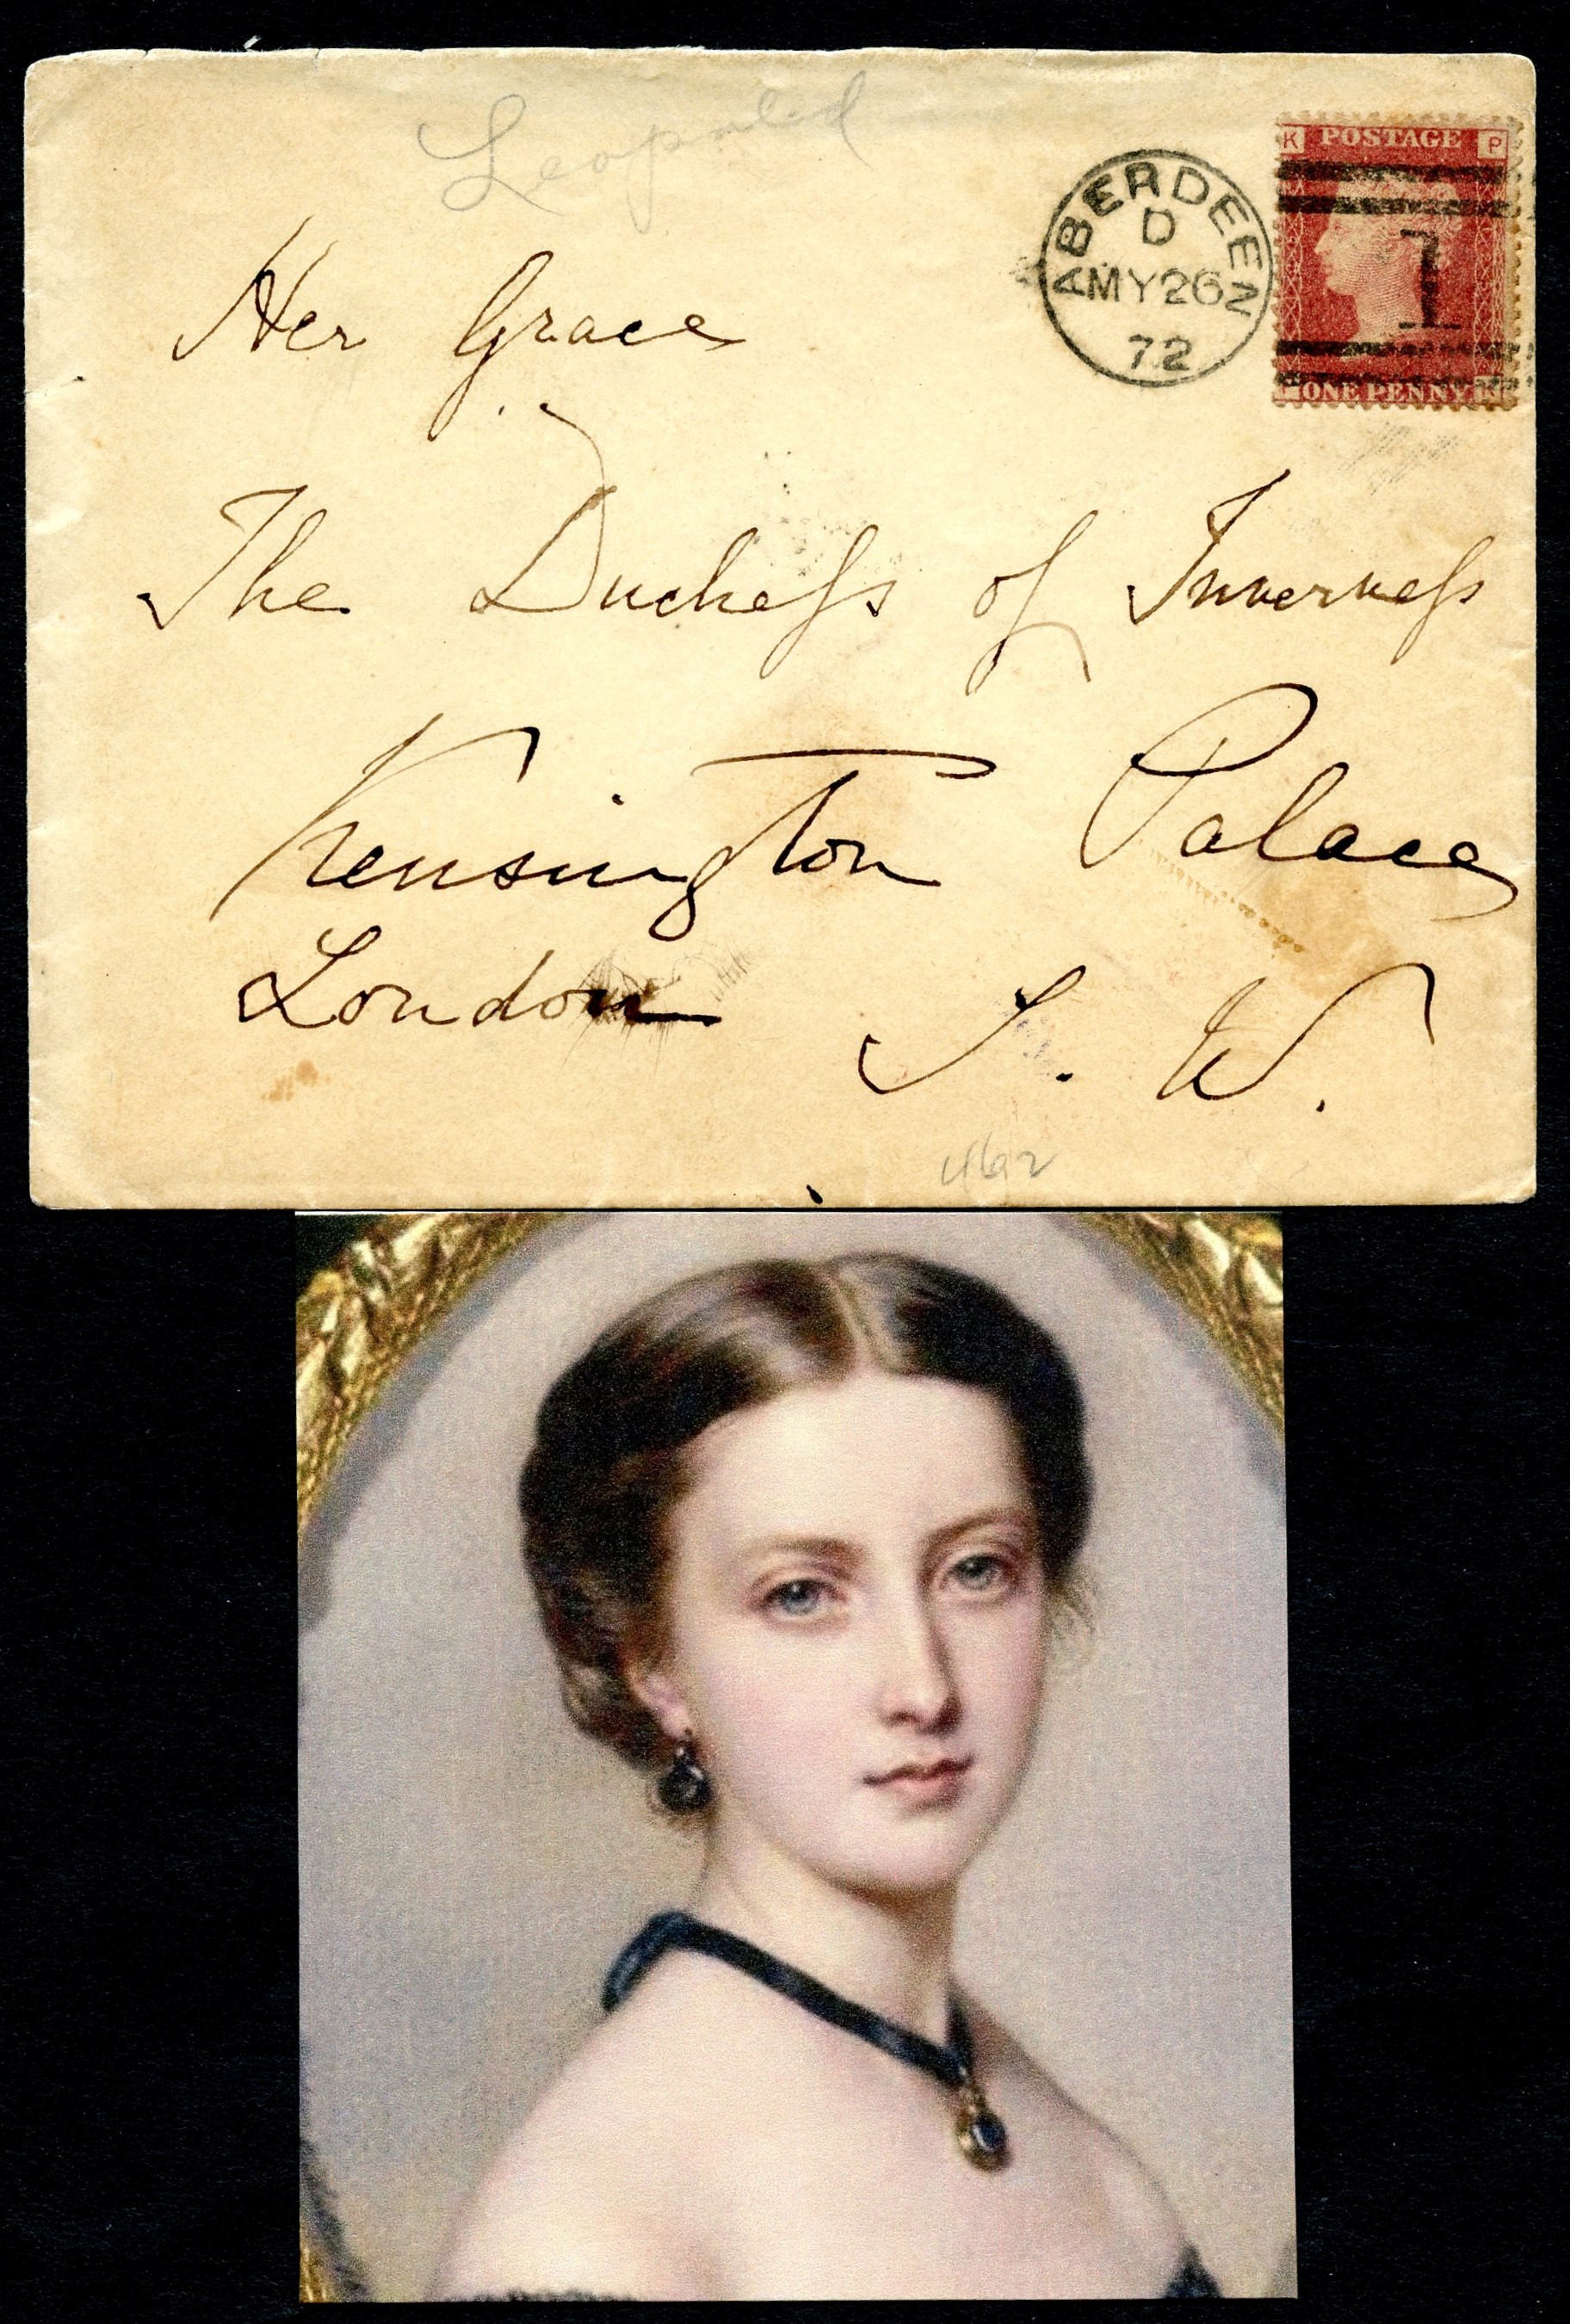 Leopold
K POSTAGE P
ABERDEEN
D
MY 26
72
1
ONE PENNY
Her Grace
The Duchess of Inverness
Kensington Palace
London S. W.
462